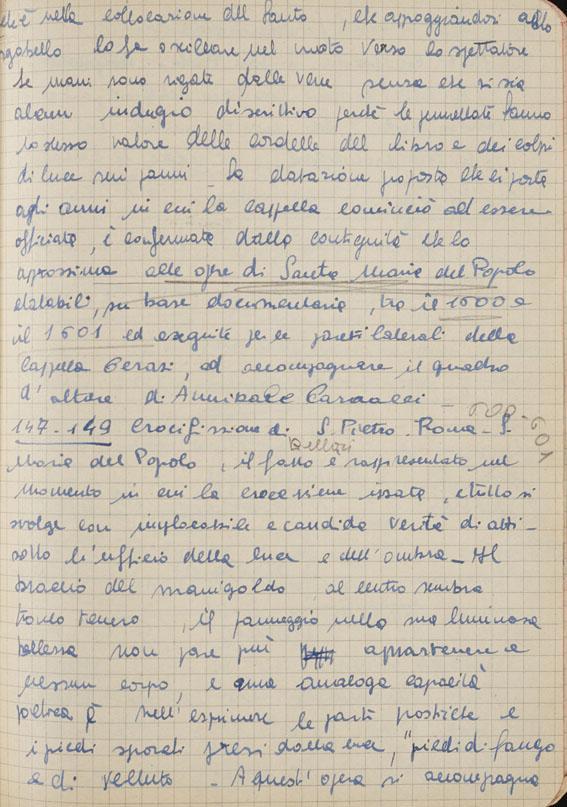 ch'è nella collocazione del Santo, che appoggiandosi allo
sgabello lo fa oscillare nel vuoto verso lo spettatore
Le mani sono rigate dalle vene senza che vi sia
alcun indugio discrittivo perchè le pennellate fanno
lo stesso valore delle cordelle del libro e dei colpi
di luce sui panni - La datazione proposta che ci porta
agli anni in cui la cappella cominciò ad essere
officiata, è confermata dalla contiguità che lo
approssima alle opre di Santa Maria del Popolo
databili, su base documentaria, tra il 1600 e
il 1601 ed eseguite per le pareti laterali della
Cappella Cerasi, ad accompagnare il quadro
d'altare di Annibale Carracci -
147-149 Crocifissione di S. Pietro - Roma - S. 600-601
Bellori
Maria del Popolo, il fatto è rappresentato nel
momento in cui la croce viene issata, e tutto si
svolge con implacabile e candida verità di atti -
sotto l'ufficio della luce e dell'ombra - Al
braccio del manigoldo al centro sembra
tronco tenero, il panneggio nella sua luminosa
bellezza non pare più appartenere a
nessun corpo, e una analoga capacità
poetica è nell'esprimere le parti posticce e
i piedi sporchi presi dalla luce, "piedi di fango
e di velluto - A quest'opera si accompagna